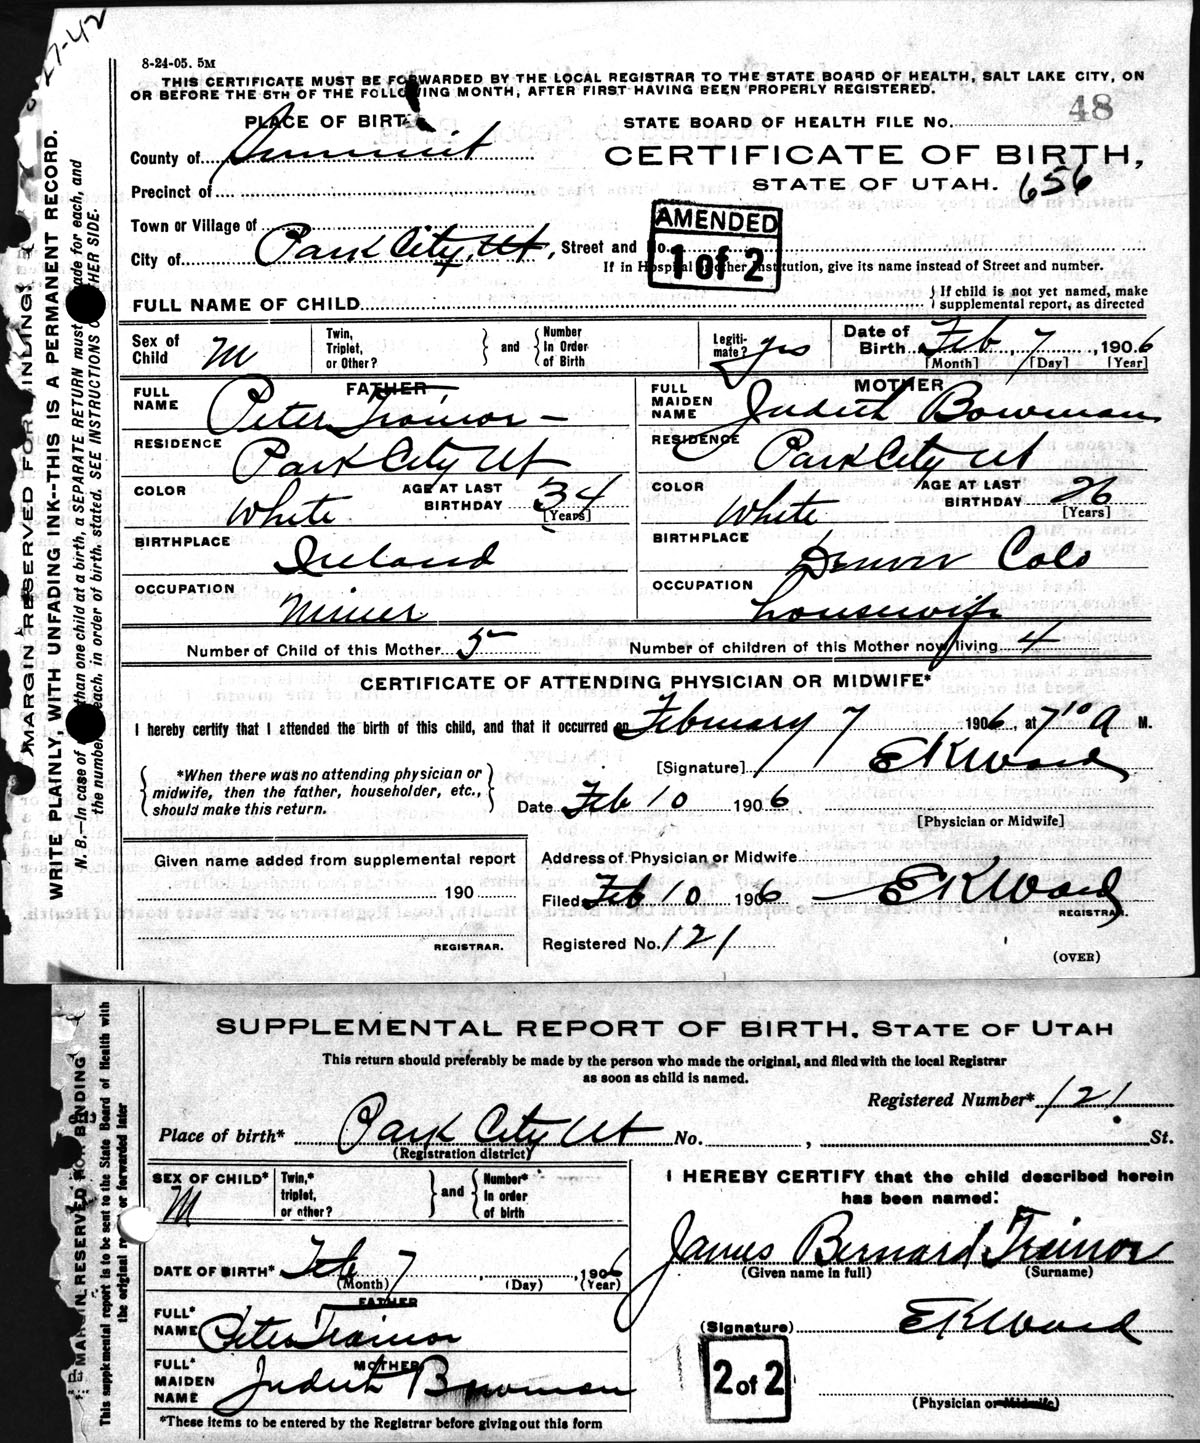 27-42
8-24-05. 5M
THIS CERTIFICATE MUST BE FORWARDED BY THE LOCAL REGISTRAR TO THE STATE BOARD OF HEALTH, SALT LAKE CITY, ON
OR BEFORE THE 5TH OF THE FOLLOWING MONTH, AFTER FIRST HAVING BEEN PROPERLY REGISTERED.
PLACE OF BIRTH
STATE BOARD OF HEALTH FILE No. 48
County of Summit
CERTIFICATE OF BIRTH,
STATE OF UTAH. 656
Precinct of
Town or Village of
AMENDED
1 of 2
City of Park City, Ut, Street and No.
If in Hospital or other Institution, give its name instead of Street and number.
FULL NAME OF CHILD
If child is not yet named, make
supplemental report, as directed
Sex of Child M
Twin, Triplet, or Other?
and
Number In Order of Birth
Legiti-mate? yes
Date of Birth Feb, 7, 1906
[Month] [Day] [Year]
FATHER
FULL NAME Peter Trainor
RESIDENCE Park City Ut
COLOR White
AGE AT LAST BIRTHDAY 34
[Years]
BIRTHPLACE Ireland
OCCUPATION Miner
MOTHER
FULL MAIDEN NAME Judith Bowman
RESIDENCE Park City Ut
COLOR White
AGE AT LAST BIRTHDAY 26
[Years]
BIRTHPLACE Denver Colo
OCCUPATION housewife
Number of Child of this Mother 5
Number of children of this Mother now living 4
CERTIFICATE OF ATTENDING PHYSICIAN OR MIDWIFE*
I hereby certify that I attended the birth of this child, and that it occurred on February 7 1906, at 7 10 A M.
[Signature] E K Ward
*When there was no attending physician or
midwife, then the father, householder, etc.,
should make this return.
Date Feb 10 1906
[Physician or Midwife]
Given name added from supplemental report
190
REGISTRAR.
Address of Physician or Midwife
Filed Feb 10 1906 E K Ward
REGISTRAR.
Registered No. 121
(OVER)
MARGIN RESERVED FOR BINDING.
WRITE PLAINLY, WITH UNFADING INK--THIS IS A PERMANENT RECORD.
N. B.—In case of than one child at a birth, a SEPARATE RETURN must made for each, and
the number each, in order of birth, stated. SEE INSTRUCTIONS OTHER SIDE.
SUPPLEMENTAL REPORT OF BIRTH. STATE OF UTAH
This return should preferably be made by the person who made the original, and filed with the local Registrar
as soon as child is named.
Registered Number* 121
Place of birth* Park City Ut No. , St.
(Registration district)
SEX OF CHILD* M
Twin,* triplet, or other?
and
Number* in order of birth
DATE OF BIRTH* Feb 7, 1906
(Month) (Day) (Year)
FATHER
FULL* NAME Peter Trainor
MOTHER
FULL* MAIDEN NAME Judith Bowman
*These items to be entered by the Registrar before giving out this form
I HEREBY CERTIFY that the child described herein
has been named:
James Bernard Trainor
(Given name in full) (Surname)
(Signature) E K Ward
2 of 2
(Physician or Midwife)
MARGIN RESERVED FOR BINDING
This supplemental report is to be sent to the State Board of Health with
the original or forwarded later